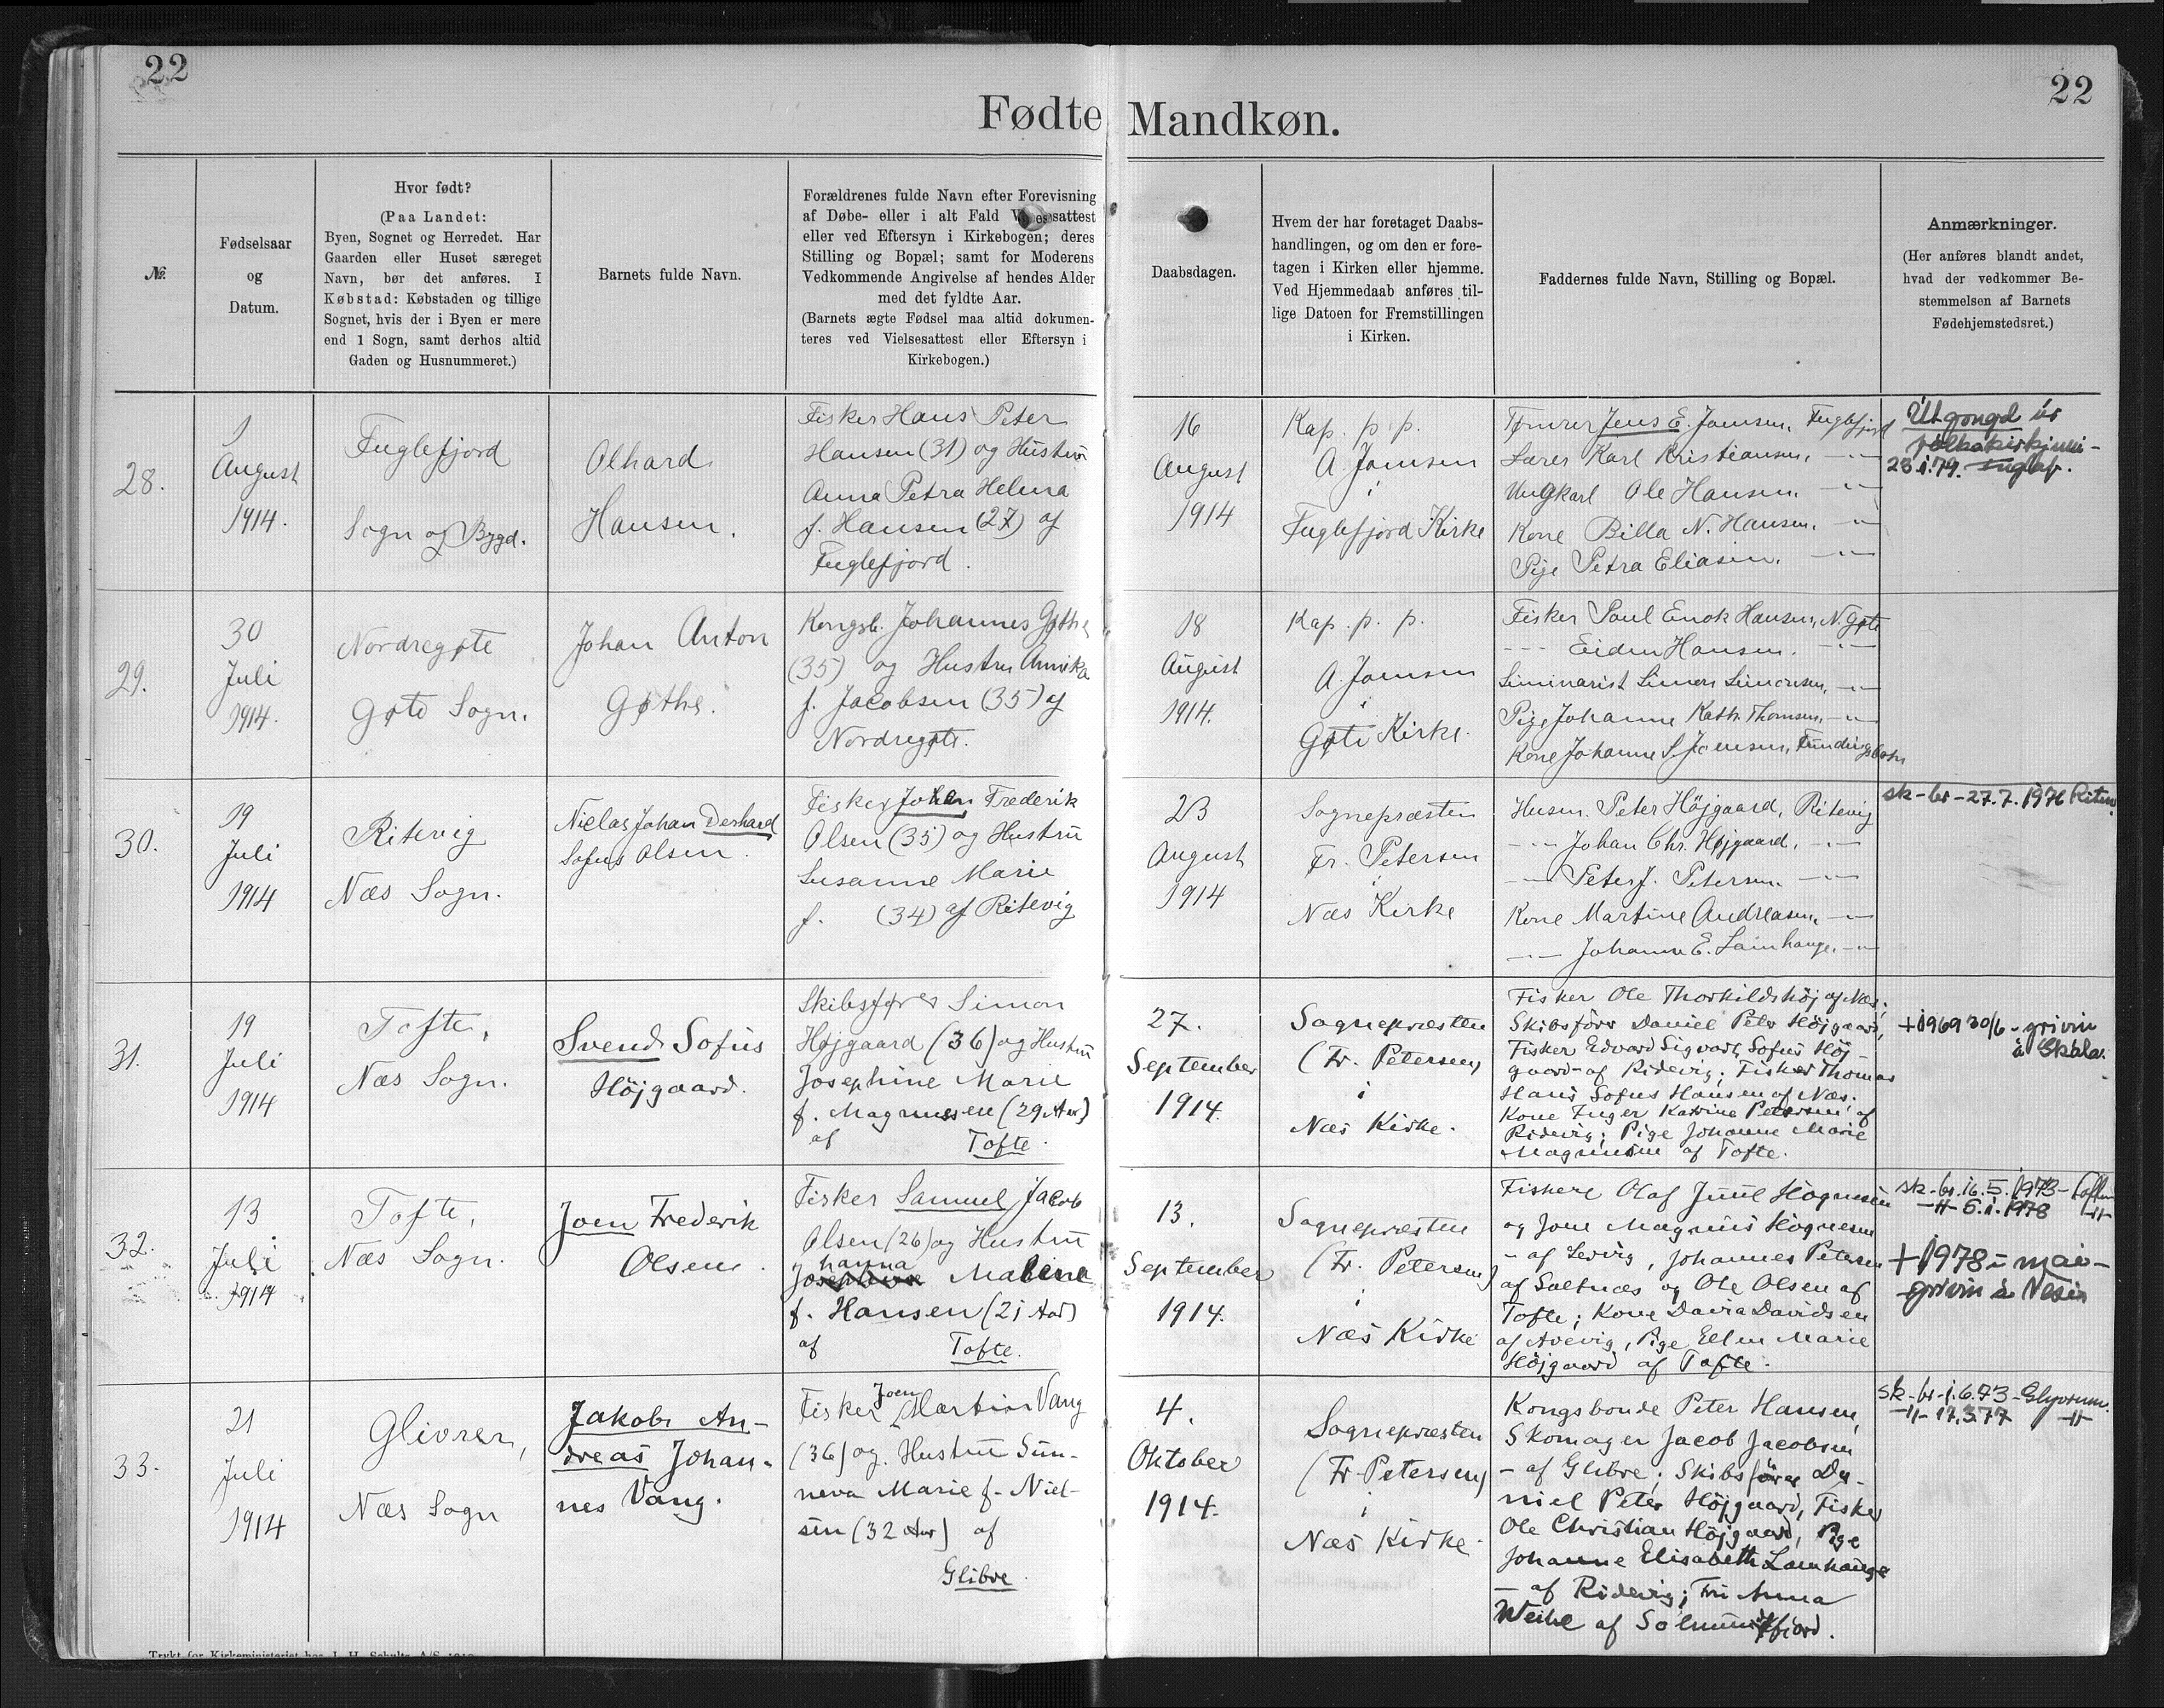 22
22
Fødte Mandkøn.
№
Fødselsaar
og
Datum.
Hvor født?
(Paa Landet:
Byen, Sognet og Herredet. Har
Gaarden eller Huset særeget
Navn, bør det anføres. I
Købstad: Købstaden og tillige
Sognet, hvis der i Byen er mere
end 1 Sogn, samt derhos altid
Gaden og Husnummeret.)
Barnets fulde Navn.
Forældrenes fulde Navn efter Forevisning
af Døbe- eller i alt Fald Vielsesattest
eller ved Eftersyn i Kirkebogen; deres
Stilling og Bopæl; samt for Moderens
Vedkommende Angivelse af hendes Alder
med det fyldte Aar.
(Barnets ægte Fødsel maa altid dokumen-
teres ved Vielsesattest eller Eftersyn i
Kirkebogen.)
Daabsdagen.
Hvem der har foretaget Daabs-
handlingen, og om den er fore-
tagen i Kirken eller hjemme.
Ved Hjemmedaab anføres til-
lige Datoen for Fremstillingen
i Kirken.
Faddernes fulde Navn, Stilling og Bopæl.
Anmærkninger.
(Her anføres blandt andet,
hvad der vedkommer Be-
stemmelsen af Barnets
Fødehjemstedsret.)
28.
1
August
1914.
Fuglefjord
Sogn og Bygd.
Olhard
Hansen.
Fisker Hans Peter
Hansen (31) og Hustru
Anna Petra Helena
f. Hansen (27) af
Fuglefjord.
16
August
1914
Kap. p. p.
A. Joensen
i
Fuglefjord Kirke
Jens E. Joensen, Fuglefjord
Lærer Karl Kristiansen, -"-
Ungkarl Ole Hansen. -"-
Kone Billa N. Hansen. -"-
Pige Petra Eliasen. -"-
Útgongd úr
fólkakirkjuni-
23.1.79. Fuglaf.
29.
30
Juli
1914.
Nordregøte
Gøte Sogn.
Johan Anton
Gøthe.
Kongsb. Johannes Gøthe
(35) og Hustru Annika
f. Jacobsen (35) af
Nordregøte.
18
August
1914.
Kap. p. p.
A. Joensen
i
Gøte Kirke.
Fisker Poul Enok Hansen, N. Gøte
-"- Eiden Hansen. -"-
Seminarist Simon Simonsen, -"-
Pige Johanne Kath. Thomsen, -"-
Kone Johanne S. Joensen, Fundingsbotn
30.
19
Juli
1914
Ritevig
Næs Sogn.
Niclas Johan Derhard
Sofus Olsen.
Fisker Johan Frederik
Olsen (35) og Hustru
Susanne Marie
f. (34) af Ritevig
23
August
1914
Sognepræsten
Fr. Petersen
i
Næs Kirke
Husm. Peter Højgaard, Ritevig
-"- Johan Chr. Højgaard, -"-
-"- Peter J. Petersen -"-
Kone Martine Andreasen, -"-
-"- Johanne E. Lamhauge, -"-
sk-br-27.7.1976
31.
19
Juli
1914
Tofte,
Næs Sogn.
Svend Sofus
Höjgaard.
Skibsfører Simon
Højgaard (36) og Hustru
Josephine Marie
f. Magnussen (29 Aar)
af Tofte.
27.
September
1914.
Sognepræsten
(Fr. Petersen)
i
Næs Kirke.
Fisker Ole Thorkildshöj af Næs;
Skibsfører Daniel Peter Höjgaard,
Fisker Edvard Sigvart Sofus Höj-
gaard af Ridevig; Fisker Thomas
Hans Sofus Hansen af Næs.
Kone Inger Katrine Petersen af
Ridevig; Pige Johanne Marie
Magnussen af Tofte.
+1969 30/6 - grivin
á Skála.
32.
13
Juli
1914
Tofte,
Næs Sogn.
Joen Frederik
Olsen.
Fisker Samuel Jacob
Olsen (26) og Hustru
hanna
Josephine Malene
f. Hansen (21 Aar)
af Tofte.
13.
September
1914.
Sognepræsten
(Fr. Petersen)
i
Næs Kirke
Fiskere Olaf Juul Högnesen
og Joen Magnus Högnesen
- af Lervig, Johannes Petersen
af Saltnæs og Ole Olsen af
Tofte; Kone Davia Davidsen
af Avevig, Pige Ellen Marie
Höjgaard af Tofte.
sk-br. 16.5.1973-
-"- 6.1.1978 -"-
+1978 - mai-
grivin á Nesi
33.
21
Juli
1914
Glivrer,
Næs Sogn
Jakob An-
dreas Johan-
nes Vang.
Joen
Fisker Martin Vang
(36) og Hustru Sun-
neva Marie f. Niel-
sen (32 Aar) af
Glibre.
4.
Oktober
1914.
Sognepræsten
(Fr. Petersen)
i
Næs Kirke.
Kongsbonde Peter Hansen,
Skomager Jacob Jacobsen
- af Glibre; Skibsfører Da-
niel Peter Höjgaard, Fisker
Ole Christian Höjgaard, Pige
Johanne Elisabeth Lamhauge
- af Ridevig; Fru Anna
Weihe af Solmundefjord.
sk-br-1.6.73-Glyvrum.
-"- 17.3.77 -"-
Trykt for Kirkeministeriet hos J. H. Schultz A/S